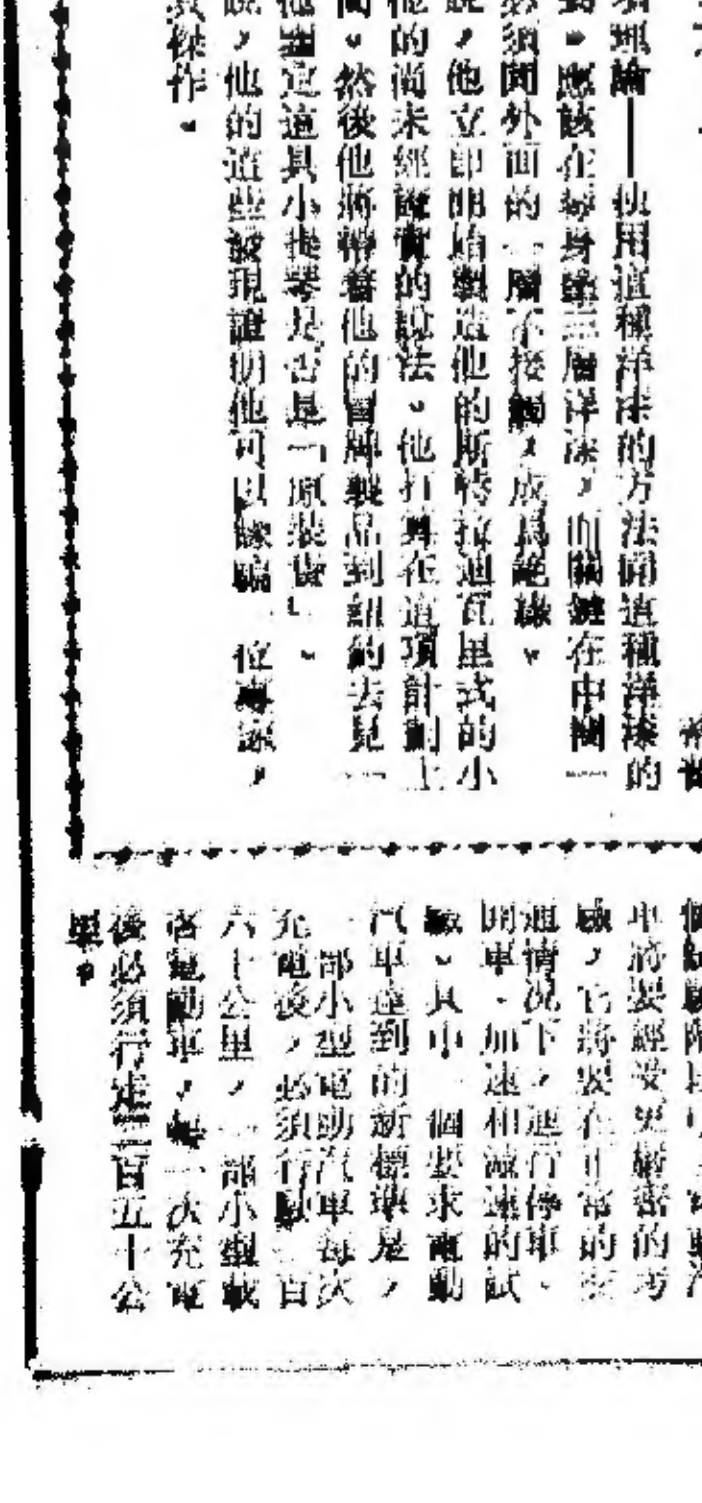 項理論——使用這種洋漆的方法聞這種洋漆的
應該在琴身塗三層洋漆，而關鍵在中間一
必須聞外面的一層不接觸，成爲絕緣。
說，他立即開始製造他的斯特拉迪瓦里式的小
他的尚未經證實的說法。他打算在這項計劃上
間。然後他將帶着他的冒牌製品到紐約去見一
他鑑定這具小提琴是否是「原裝貨」。
說，他的這些發現證明他可以欺騙一位專家，
傑作。
個試驗階段中，電動汽
車將要經受更嚴密的考
驗，它將要在正常的交
通情况下，進行停車、
開車、加速和減速的試
驗。其中一個要求電動
汽車達到的新標準是，
一部小型電動汽車每次
充電後，必須行駛二百
六十公里，一部小型載
客電動車，每一次充電
後必須行走二百五十公
里。